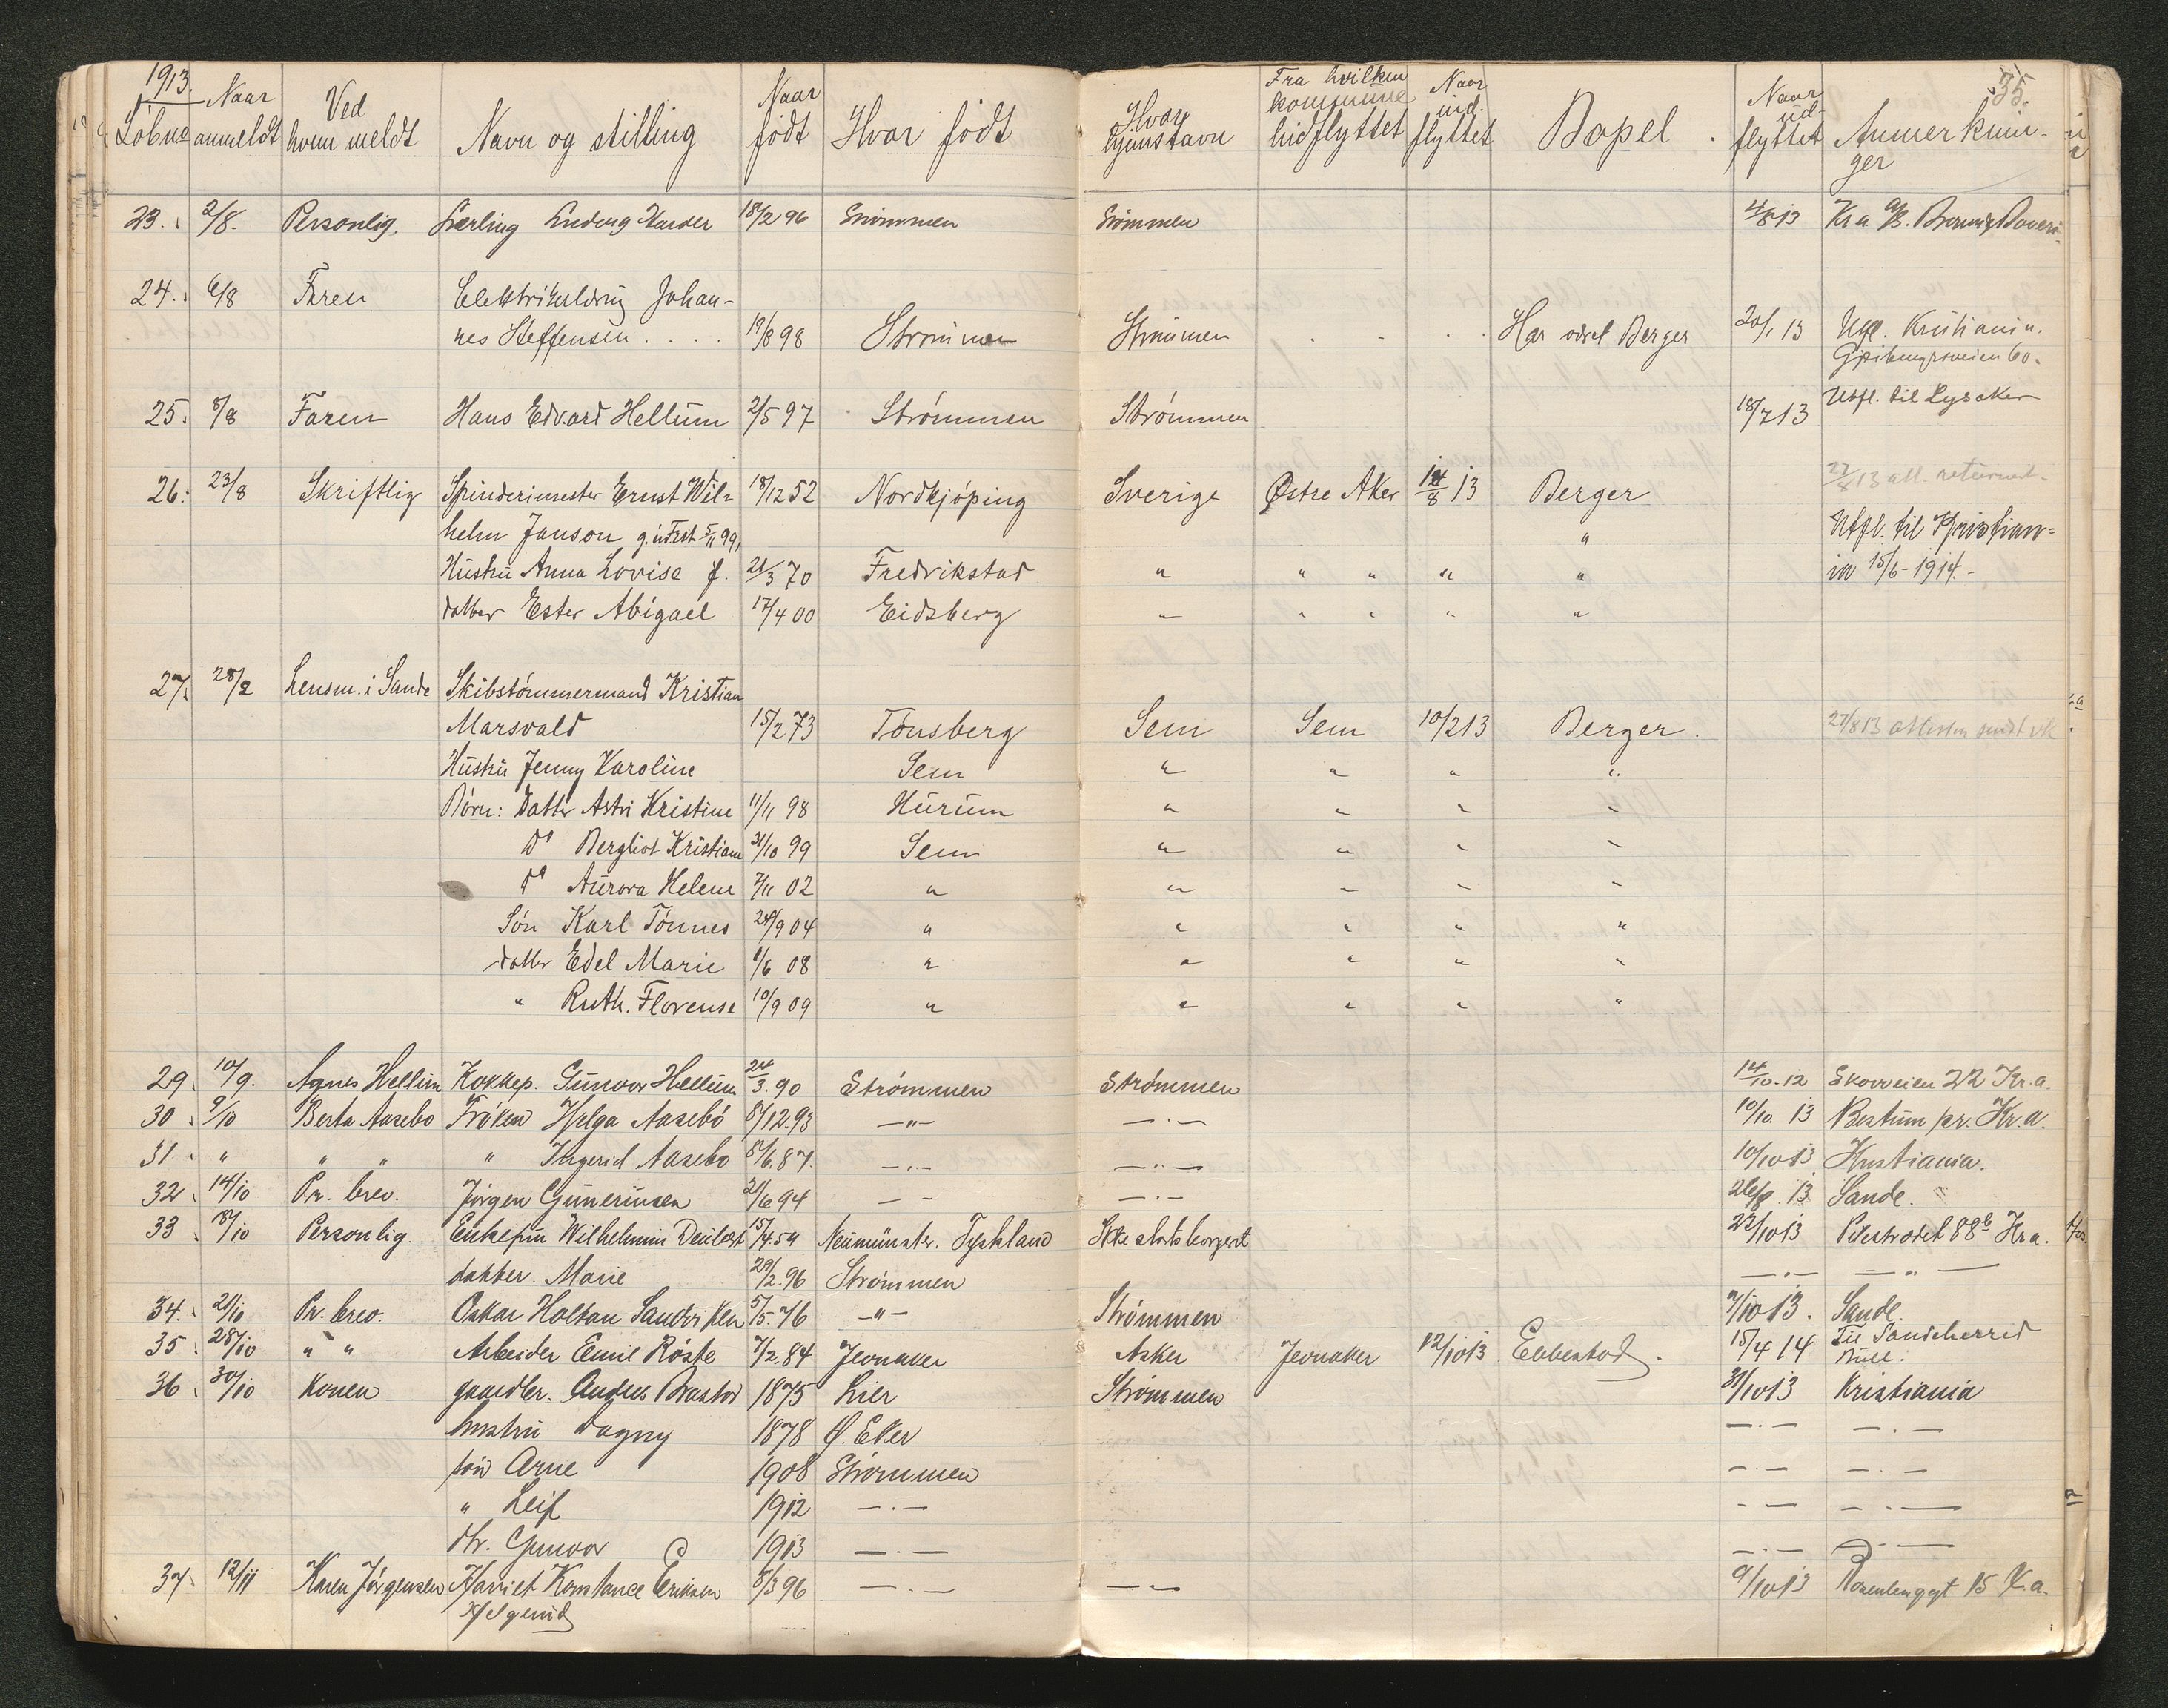 1913. 35.
Löbno Naar anmeldt Ved hvem meldt Navn og stilling Naar födt Hvor födt Hvor hjemstavn Fra hvilken kommune hidflyttet Naar ind-flyttet Bopel. Naar ud-flyttet Anmerkninger
23. 2/8. Personlig. Lærling Harder 18/2 96 Strömmen Strömmen 4/8 13 Kr.a.
24. 6/8 Faren Johan-
nes Steffensen . . . . 19/8 98 Strömmen Strömmen Har Berger 20/1 13 Kristiania.
60.
25. 8/8 Faren Hans Edvard Hellum 2/5 97 Strömmen Strömmen 18/7 13 Utfl. til Lysaker
26. 23/8 Skriftlig Spinderimester Ernst Wil= 18/12 52 Nordkjöping Sverige Østre Aker 14/8 13 Berger 27/8 13 att. returnert.
helm Janson g. 5/11 99, " Utfl. til Kristian=
Hustru Anna Lovise f. 21/3 70 Fredrikstad " " " " " ia 15/6-1914.-
datter Ester Abigael 17/4 00 Eidsberg " " " " "
27. 28/2 Lensm. i Sande Skibstömmermand Kristian
Marsvald 15/2 73 Tönsberg Sem Sem 10/2 13 Berger. 27/8 13 attesten sendt
Hustru Jenny Karoline Sem " " " "
Börn: Datter Astri Kristine 11/11 98 Hurum " " " "
Do Bergliot Kristiane 31/10 99 Sem " " " "
Do Aurora Helene 7/11 02 " " " " "
Sön Karl Tönnes 24/9 04 " " " " "
datter Edel Marie 1/6 08 " " " " "
" Ruth. Florense 10/9 09 " " " " "
29. 10/9. Agnes Hellum Kokkep. Gunvor Hellum 24/3.90 Strömmen Strömmen 14/10.12 Skovveien 22 Kr.a.
30. 9/10 Berta Aasebö Fröken Helga Aasebö 8/12.93 —"— —.— 10/10. 13 Bestum pr. Kr.a.
31. " " " " Ingerid Aasebo 8/6.87. —.— —"— 10/10 13 Kristiania.
32. 14/10 Pr. brev. Jörgen Guneriusen 21/6 94 — — —.— 26/8. 13 Sande.
33. 18/10 Personlig. Enkefru Wilhelmine 15/4 54 Neumünster. Tyskland Ikke statsborgerret 22/10 13 Pilestrædet 88b Kra.
datter. Marie 29/2.96 Strömmen —"— —"—
34. 21/10 Pr. brev. Oskar Holtan Sandviken 5/5.76 —"— Strömmen 7/10 13. Sande.
35. 28/10 " " Arbeider Emil Röste 7/2.84 Jevnaker Asker Jevnaker 12/10 13 Ebbestad. 15/4 14 Til Sandeherred
36. 30/10 Konen gaardbr. Anders 1875 Lier Strömmen 31/10 13 Kristiania
hustru Dagny 1878 Ø. Eker —.— —.—
sön Arne 1908 Strömmen —.— —.—
" Leif 1912 —.— — — —.—
dtr. Gunvor 1913 —.— —.— —.—
37. 12/11 Karen Jörgensen Harriet Konstance Eriksen 8/3 96 —.— —— 9/10 13 15 K.a.